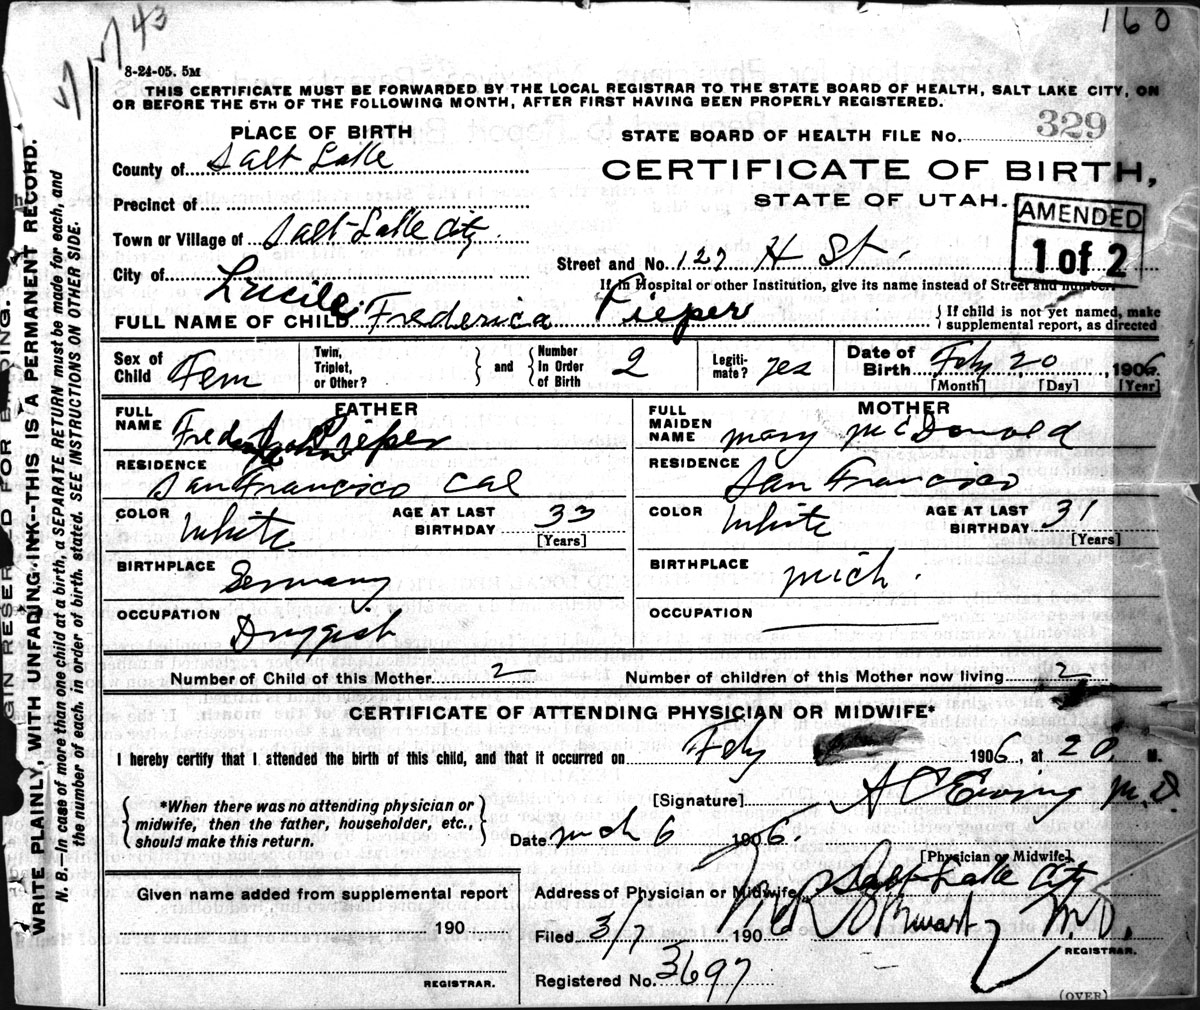 160
43
8-24-05. 5M
THIS CERTIFICATE MUST BE FORWARDED BY THE LOCAL REGISTRAR TO THE STATE BOARD OF HEALTH, SALT LAKE CITY, ON
OR BEFORE THE 5TH OF THE FOLLOWING MONTH, AFTER FIRST HAVING BEEN PROPERLY REGISTERED.
PLACE OF BIRTH
County of Salt Lake
Precinct of
Town or Village of Salt Lake City
City of
STATE BOARD OF HEALTH FILE No. 329
CERTIFICATE OF BIRTH,
STATE OF UTAH.
AMENDED
1 of 2
Street and No. 127 H St.
If in Hospital or other Institution, give its name instead of Street and number.
FULL NAME OF CHILD Lucile Frederica Pieper
If child is not yet named, make
supplemental report, as directed
Sex of Child Fem
Twin, Triplet, or Other?
and
Number In Order of Birth 2
Legitimate? yes
Date of Birth Feby 20, 1906
[Month] [Day] [Year]
FATHER
FULL NAME Pieper
RESIDENCE San Francisco Cal
COLOR White
AGE AT LAST BIRTHDAY 33
[Years]
BIRTHPLACE Germany
OCCUPATION Druggist
MOTHER
FULL MAIDEN NAME Mary McDonald
RESIDENCE San Francisco
COLOR White
AGE AT LAST BIRTHDAY 31
[Years]
BIRTHPLACE Mich.
OCCUPATION
Number of Child of this Mother 2
Number of children of this Mother now living 2
CERTIFICATE OF ATTENDING PHYSICIAN OR MIDWIFE*
I hereby certify that I attended the birth of this child, and that it occurred on Feby 1906, at 20. M.
*When there was no attending physician or
midwife, then the father, householder, etc.,
should make this return.
[Signature] A C Ewing M.D.
Date Mch 6 1906.
[Physician or Midwife]
Address of Physician or Midwife Salt Lake City
Given name added from supplemental report
190
REGISTRAR.
Filed 3/7 190 M.D.
REGISTRAR.
Registered No. 3697
(OVER)
RESERVED FOR BINDING.
WRITE PLAINLY, WITH UNFADING INK--THIS IS A PERMANENT RECORD.
N. B.—In case of more than one child at a birth, a SEPARATE RETURN must be made for each, and
the number of each, in order of birth, stated. SEE INSTRUCTIONS ON OTHER SIDE.